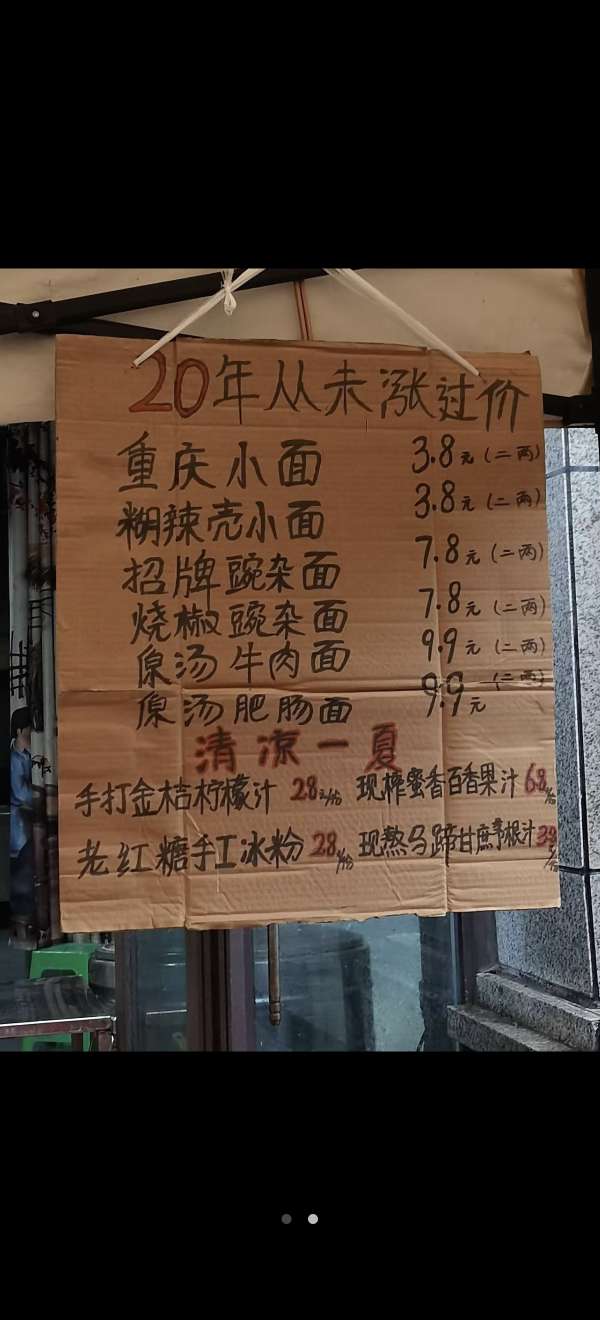 20年从未涨过价
重庆小面 3.8元(二两)
糊辣壳小面 3.8元(二两)
招牌豌杂面 7.8元(二两)
烧椒豌杂面 7.8元(二两)
原汤牛肉面 9.9元(二两)
原汤肥肠面 9.9元(二两)
清凉一夏
手打金桔柠檬汁 2.8元/份 现榨蜜香百香果汁 6.8/份
老红糖手工冰粉 2.8/份 现熬马蹄甘蔗茅根汁 3.9元/份